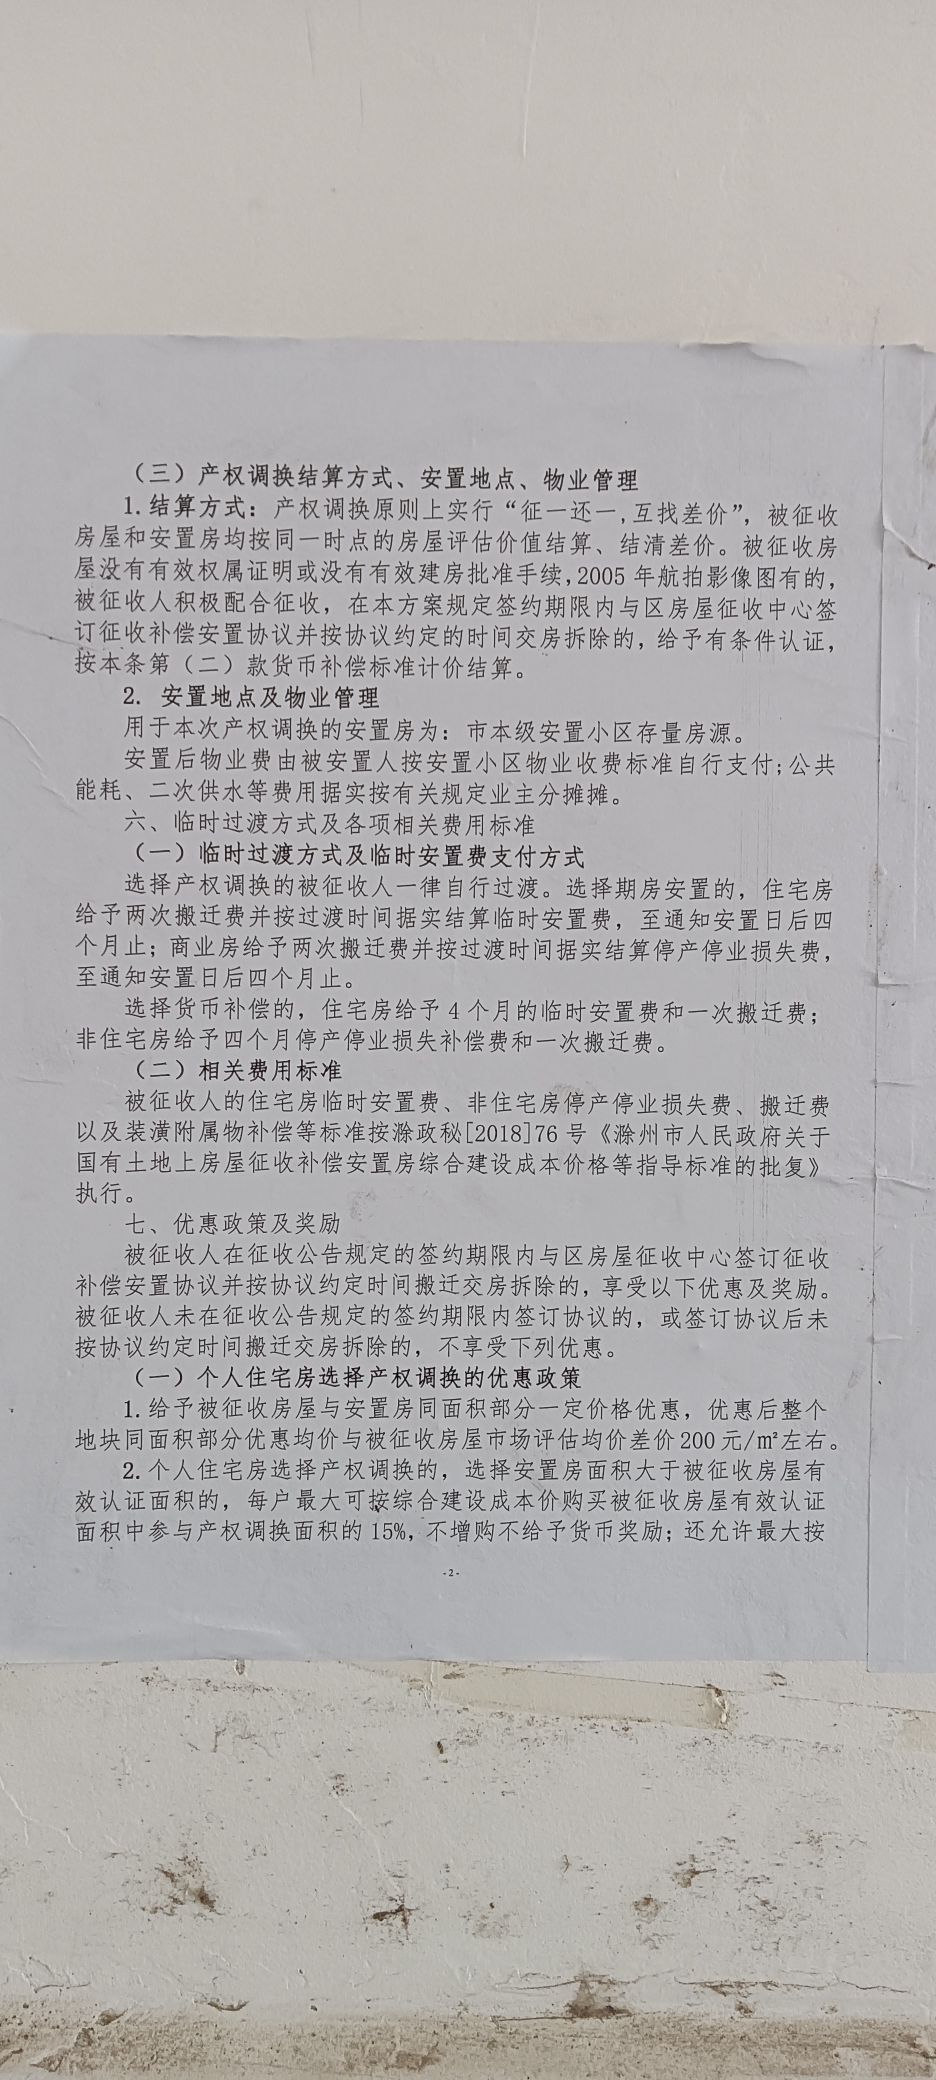 （三）产权调换结算方式、安置地点、物业管理
1.结算方式：产权调换原则上实行“征一还一,互找差价”，被征收
房屋和安置房均按同一时点的房屋评估价值结算、结清差价。被征收房
屋没有有效权属证明或没有有效建房批准手续,2005年航拍影像图有的，
被征收人积极配合征收，在本方案规定签约期限内与区房屋征收中心签
订征收补偿安置协议并按协议约定的时间交房拆除的，给予有条件认证，
按本条第（二）款货币补偿标准计价结算。
2. 安置地点及物业管理
用于本次产权调换的安置房为：市本级安置小区存量房源。
安置后物业费由被安置人按安置小区物业收费标准自行支付;公共
能耗、二次供水等费用据实按有关规定业主分摊摊。
六、临时过渡方式及各项相关费用标准
（一）临时过渡方式及临时安置费支付方式
选择产权调换的被征收人一律自行过渡。选择期房安置的，住宅房
给予两次搬迁费并按过渡时间据实结算临时安置费，至通知安置日后四
个月止；商业房给予两次搬迁费并按过渡时间据实结算停产停业损失费，
至通知安置日后四个月止。
选择货币补偿的，住宅房给予4个月的临时安置费和一次搬迁费；
非住宅房给予四个月停产停业损失补偿费和一次搬迁费。
（二）相关费用标准
被征收人的住宅房临时安置费、非住宅房停产停业损失费、搬迁费
以及装潢附属物补偿等标准按滁政秘[2018]76号《滁州市人民政府关于
国有土地上房屋征收补偿安置房综合建设成本价格等指导标准的批复》
执行。
七、优惠政策及奖励
被征收人在征收公告规定的签约期限内与区房屋征收中心签订征收
补偿安置协议并按协议约定时间搬迁交房拆除的，享受以下优惠及奖励。
被征收人未在征收公告规定的签约期限内签订协议的，或签订协议后未
按协议约定时间搬迁交房拆除的，不享受下列优惠。
（一）个人住宅房选择产权调换的优惠政策
1.给予被征收房屋与安置房同面积部分一定价格优惠，优惠后整个
地块同面积部分优惠均价与被征收房屋市场评估均价差价200元/㎡左右。
2.个人住宅房选择产权调换的，选择安置房面积大于被征收房屋有
效认证面积的，每户最大可按综合建设成本价购买被征收房屋有效认证
面积中参与产权调换面积的15%，不增购不给予货币奖励；还允许最大按
-2-